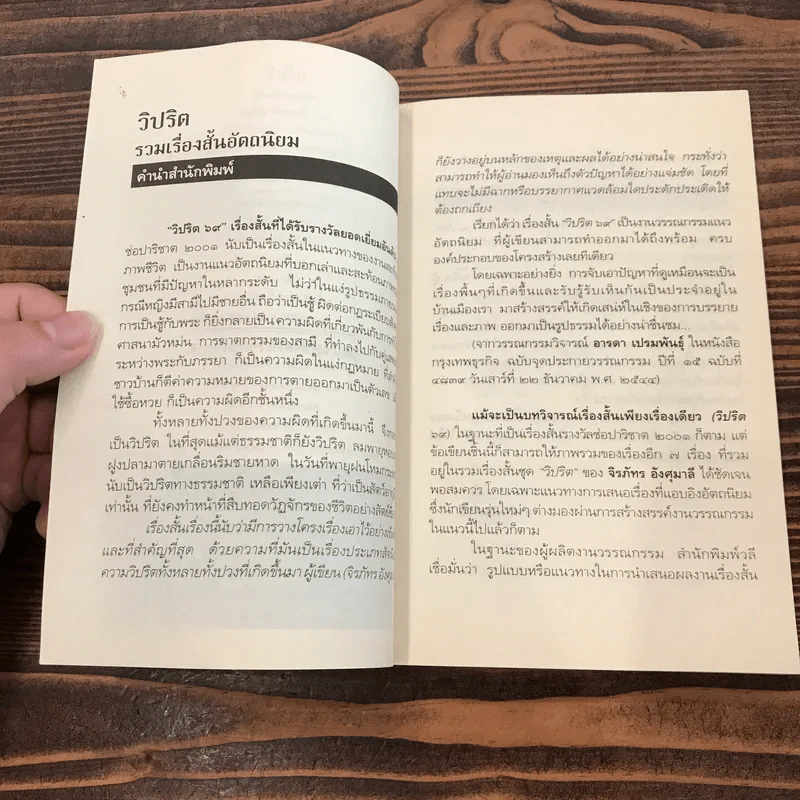 วิปริต
รวมเรื่องสั้นอัตถนิยม
คำนำสำนักพิมพ์
"วิปริต ๖๙" เรื่องสั้นที่ได้รับรางวัลยอดเยี่ยมอันดับ
ช่อปาริชาต ๒๐๐๑ นับเป็นเรื่องสั้นในแนวทางของงานสะท้อน
ภาพชีวิต เป็นงานแนวอัตถนิยมที่บอกเล่าและสะท้อนภาพ
ชุมชนที่มีปัญหาในหลากระดับ ไม่ว่าในแง่รูปธรรมภายนอก
กรณีหญิงมีสามีไปมีชายอื่น ถือว่าเป็นชู้ ผิดต่อกฎระเบียบสังคม
การเป็นชู้กับพระ ก็ยิ่งกลายเป็นความผิดที่เกี่ยวพันกับการทำ
ศาสนามัวหม่น การฆาตกรรมของสามี ที่ทำลงไปกับคู่
ระหว่างพระกับภรรยา ก็เป็นความผิดในแง่กฎหมาย ที่สำคัญ
ชาวบ้านก็ตีค่าความหมายของการตายออกมาเป็นตัวเลข
ใช้ซื้อหวย ก็เป็นความผิดอีกชั้นหนึ่ง
ทั้งหลายทั้งปวงของความผิดที่เกิดขึ้นมานี้ จึง
เป็นวิปริต ในที่สุดแม้แต่ธรรมชาติก็ยังวิปริต ลมพายุหอบ
ฝูงปลามาตายเกลื่อนริมชายหาด ในวันที่พายุฝนโหมกระ
นับเป็นวิปริตทางธรรมชาติ เหลือเพียงเต่า ที่ว่าเป็นสัตว์
เท่านั้น ที่ยังคงทำหน้าที่สืบทอดวัฏจักรของชีวิตอย่างสัตย์ซื่อ
เรื่องสั้นเรื่องนี้นับว่ามีการวางโครงเรื่องเอาไว้อย่าง
และที่สำคัญที่สุด ด้วยความที่มันเป็นเรื่องประเภทสัจนิยม
ความวิปริตทั้งหลายทั้งปวงที่เกิดขึ้นมา ผู้เขียน (จิรภัทร อังศุ
ก็ยังวางอยู่บนหลักของเหตุและผลได้อย่างน่าสนใจ กระทั่งว่า
สามารถทำให้ผู้อ่านมองเห็นถึงตัวปัญหาได้อย่างแจ่มชัด โดยที่
แทบจะไม่มีฉากหรือบรรยากาศแวดล้อมใดประดักประเดิดให้
ต้องถกเถียง
เรียกได้ว่า เรื่องสั้น "วิปริต ๖๙" เป็นงานวรรณกรรมแนว
อัตถนิยม ที่ผู้เขียนสามารถทำออกมาได้ถึงพร้อม ครบ
องค์ประกอบของโครงสร้างเลยทีเดียว
โดยเฉพาะอย่างยิ่ง การจับเอาปัญหาที่ดูเหมือนจะเป็น
เรื่องพื้นๆที่เกิดขึ้นและรับรู้รับเห็นกันเป็นประจำอยู่ใน
บ้านเมืองเรา มาสร้างสรรค์ให้เกิดเสน่ห์ในเชิงของการบรรยาย
เรื่องและภาพ ออกมาเป็นรูปธรรมได้อย่างน่าชื่นชม...
(จากวรรณกรรมวิจารณ์ อารดา เปรมพันธุ์ ในหนังสือ
กรุงเทพธุรกิจ ฉบับจุดประกายวรรณกรรม ปีที่ ๑๕ ฉบับที่
๔๘๓๙ วันเสาร์ที่ ๒๒ ธันวาคม พ.ศ. ๒๕๔๔)
แม้จะเป็นบทวิจารณ์เรื่องสั้นเพียงเรื่องเดียว (วิปริต
๖๙) ในฐานะที่เป็นเรื่องสั้นรางวัลช่อปาริชาต ๒๐๐๑ ก็ตาม แต่
ข้อเขียนชิ้นนี้ก็สามารถให้ภาพรวมของเรื่องอีก ๗ เรื่อง ที่รวม
อยู่ในรวมเรื่องสั้นชุด "วิปริต" ของ จิรภัทร อังศุมาลี ได้ชัดเจน
พอสมควร โดยเฉพาะแนวทางการเสนอเรื่องที่แอบอิงอัตถนิยม
ซึ่งนักเขียนรุ่นใหม่ๆ ต่างมองผ่านการสร้างสรรค์งานวรรณกรรม
ในแนวนี้ไปแล้วก็ตาม
ในฐานะของผู้ผลิตงานวรรณกรรม สำนักพิมพ์วลี
เชื่อมั่นว่า รูปแบบหรือแนวทางในการนำเสนอผลงานเรื่องสั้น